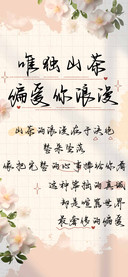 唯独山茶
偏爱你浪漫
山茶的浪漫病于决绝
整朵坠落
像把完整的心事摔给你看
这种笨拙的真诚
却是喧嚣世界
最奢侈的偏爱